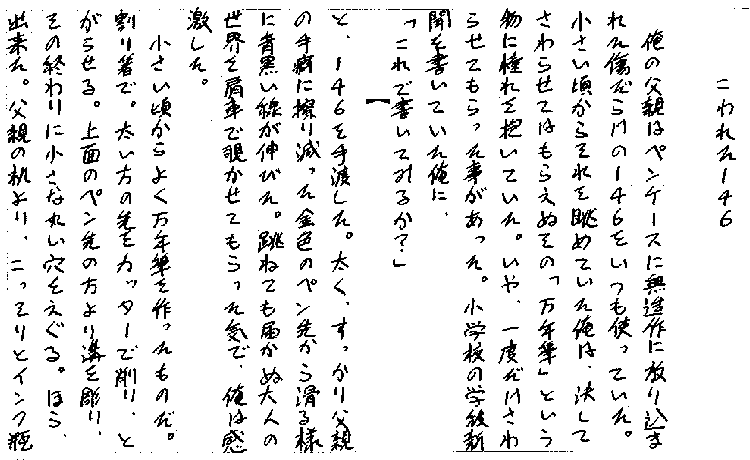 こわれた146
俺の父親はペンケースに無造作に放り込ま
れた傷だらけの146をいつも使っていた。
小さい頃からそれを眺めていた俺は、決して
さわらせてはもらえぬその「万年筆」という
物に憧れを抱いていた。いや、一度だけさわ
らせてもらった事があった。小学校の学級新
聞を書いていた俺に、
「これで書いてみるか？」
と、146を手渡した。太く、すっかり父親
の手癖に擦り減った金色のペン先から滑る様
に青黒い線が伸びた。跳ねても届かぬ大人の
世界を肩車で覗かせてもらった気で、俺は感
激した。
小さい頃からよく万年筆を作ったものだ。
割り箸で。太い方の先をカッターで削り、と
がらせる。上面のペン先の方より溝を彫り、
その終わりに小さな丸い穴をえぐる。ほら、
出来た。父親の机より、こっそりとインク瓶